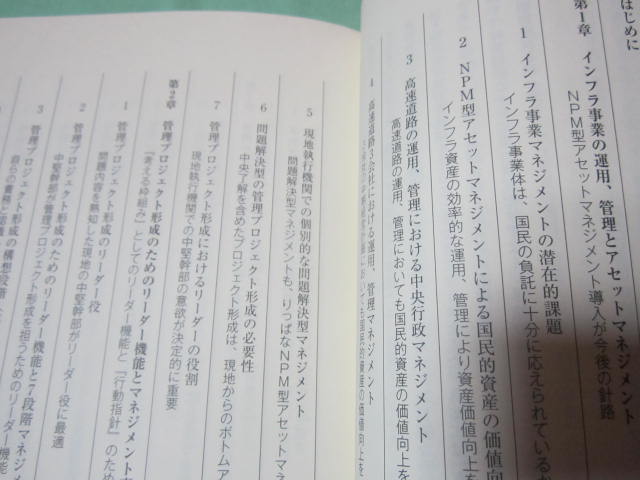 はじめに
第1章 インフラ事業の運用、管理とアセットマネジメント
NPM型アセットマネジメント導入が今後の針路
1 インフラ事業マネジメントの潜在的課題
インフラ事業体は、国民の負託に十分に応えられているか
2 NPM型アセットマネジメントによる国民的資産の価値向
インフラ資産の効率的な運用、管理により資産価値向上を
3 高速道路の運用、管理における中央行政マネジメント
高速道路の運用、管理においても国民的資産の価値向上を
4 高速道路3会社における運用、管理マネジメント
においても国民的資産の価値向上を
5 現地執行機関での個別的な問題解決型マネジメント
問題解決型マネジメントも、りっぱなNPM型アセットマネ
6 問題解決型の管理プロジェクト形成の必要性
中央了解を含めたプロジェクト形成は、現地からのボトムア
7 管理プロジェクト形成におけるリーダーの役割
現地執行機関での中堅幹部の意欲が決定的に重要
第2章 管理プロジェクト形成のためのリーダー機能とマネジメント
『考える枠組み』としてのリーダー機能と『行動指針』のため
1 管理プロジェクト形成のリーダー役
問題内容を熟知した現地の中堅幹部がリーダー役に最適
2 管理プロジェクト形成のためのリーダー機能
中堅幹部が管理プロジェクト形成を担うためのリーダー機能
3 管理プロジェクト形成の構想段階